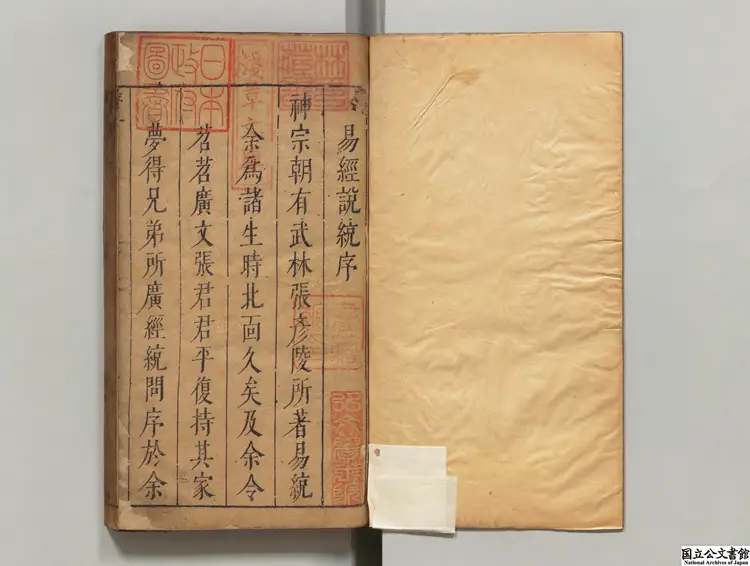 易經說統序
神宗朝有武林張彥陵所著易統
余爲諸生時北面久矣及余令
苕苕廣文張君君平復持其家
夢得兄弟所廣經統問序於余
林氏藏書
淺草文庫
日本政府圖書
国立公文書館
National Archives of Japan